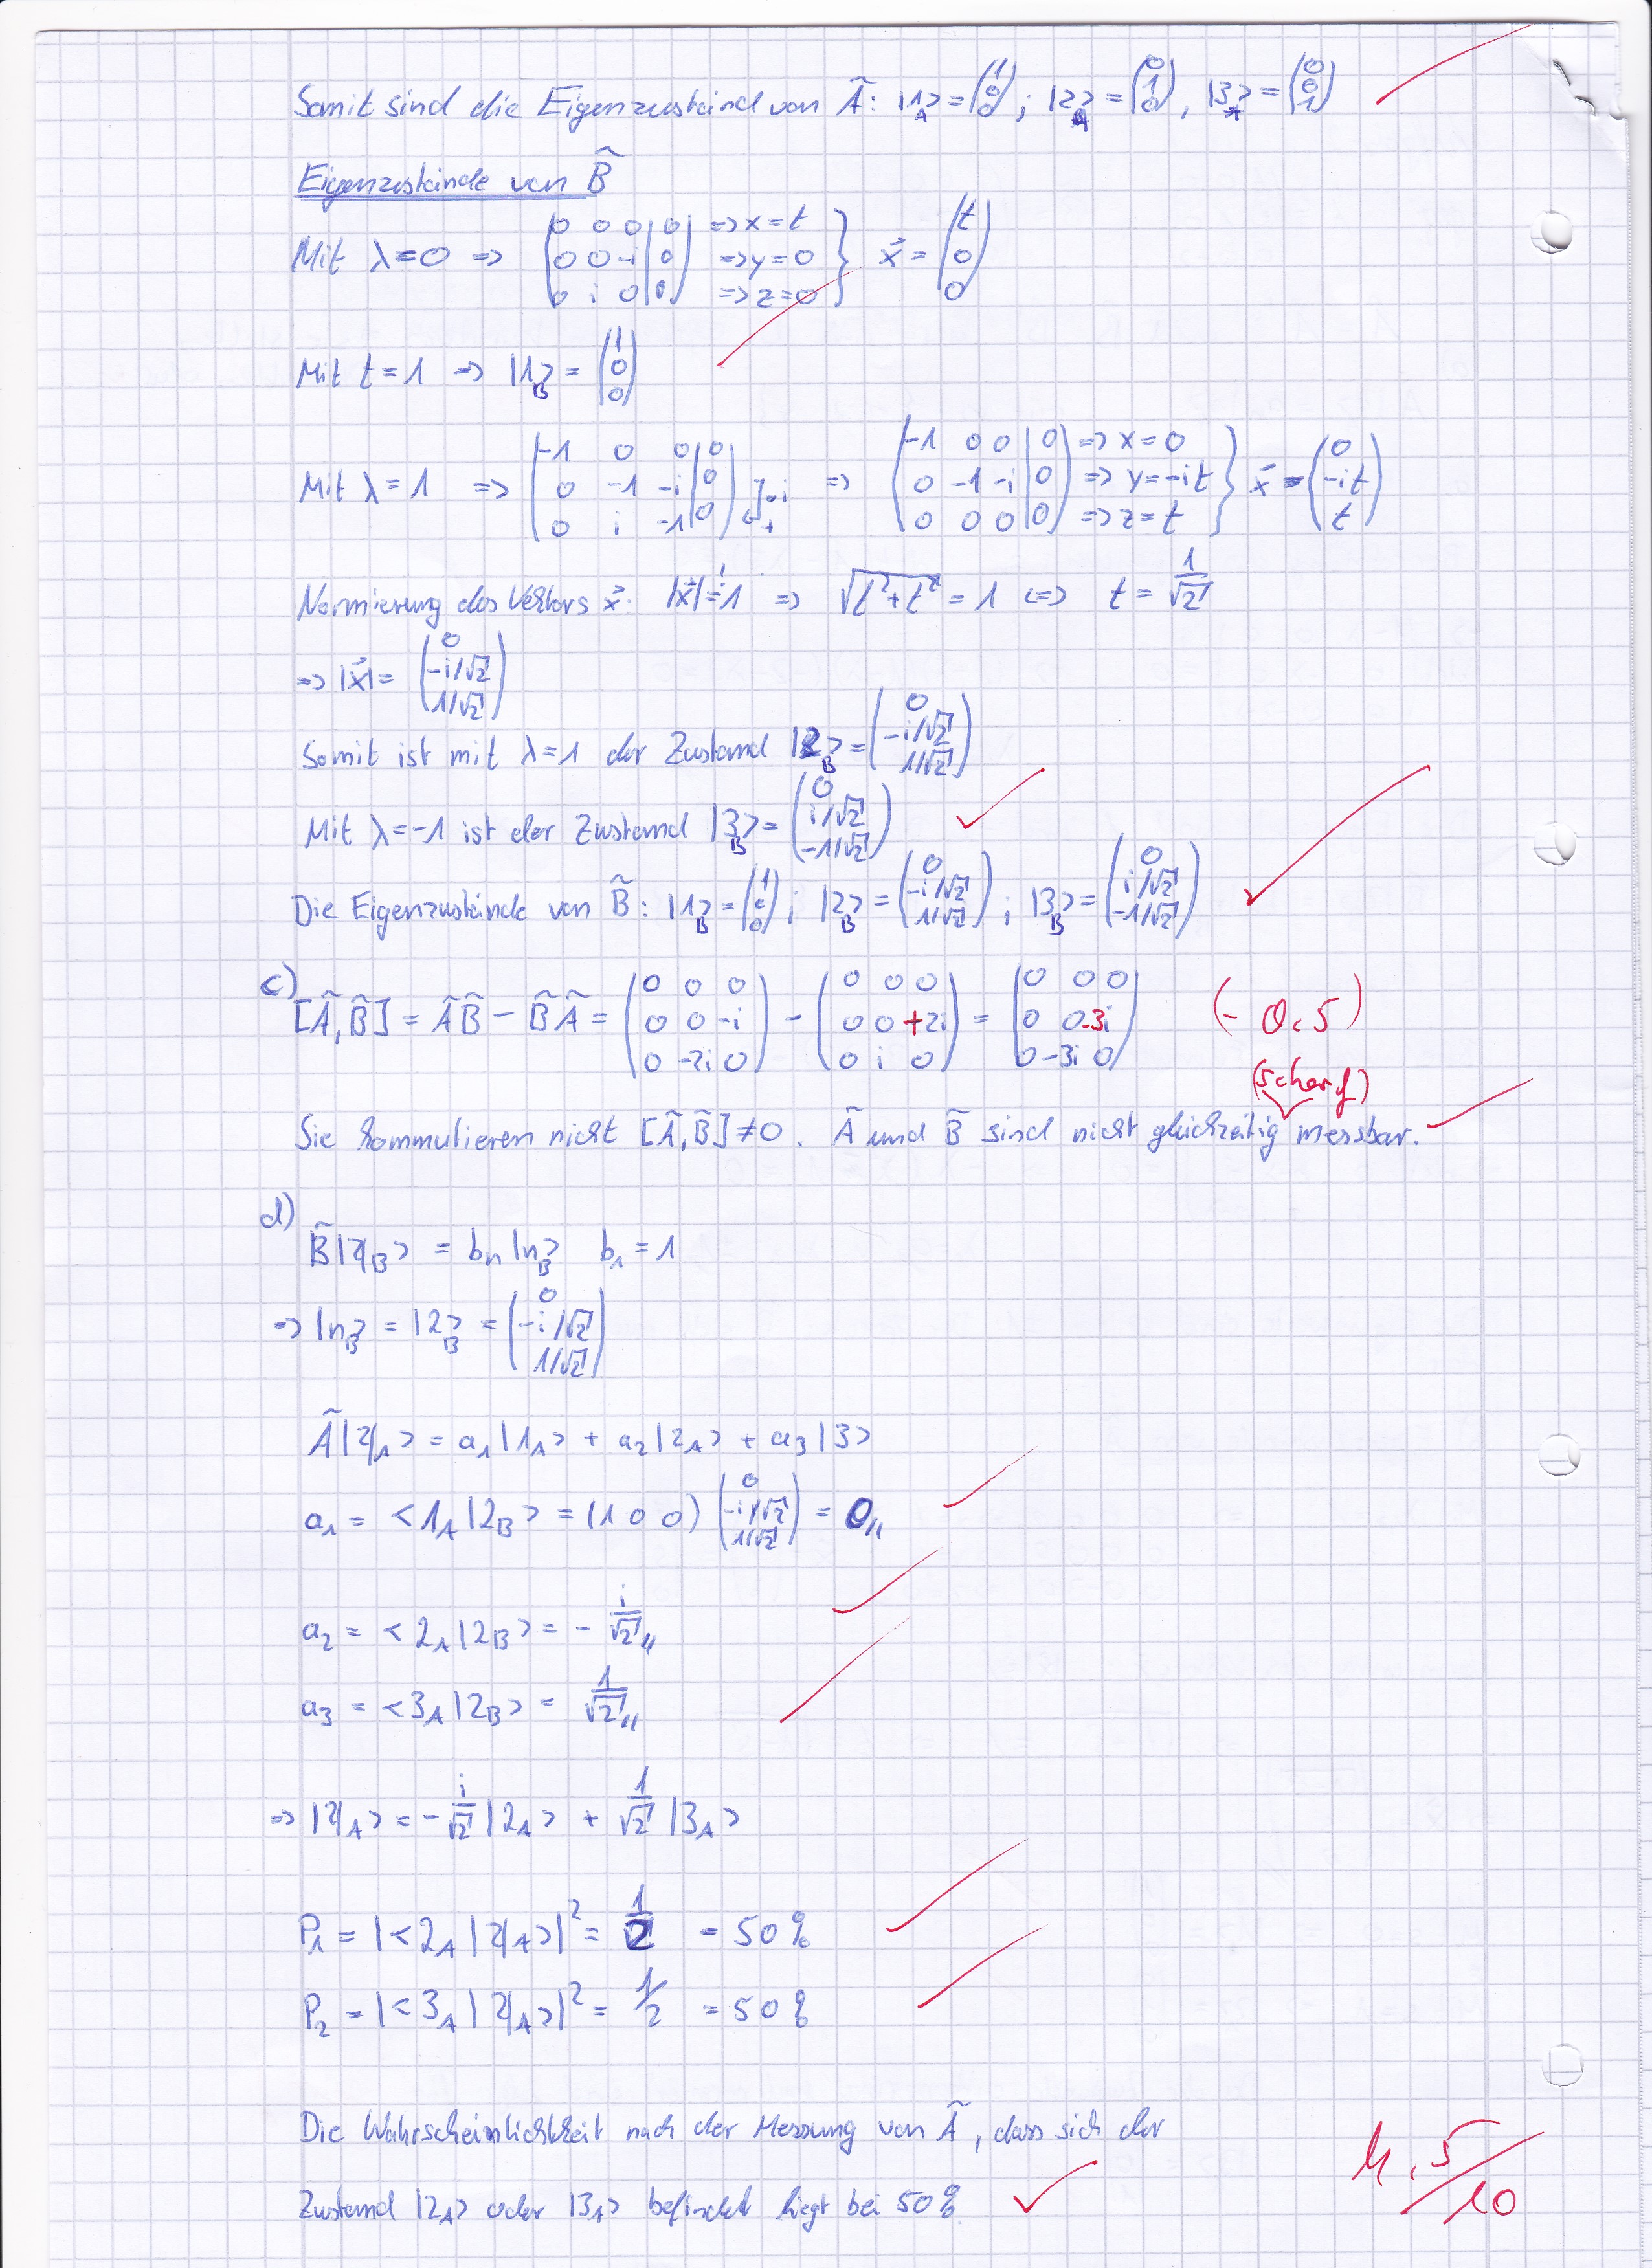 Somit sind die Eigenzustände von Ã: |1_A> = (1 0 0); |2_A> = (0 1 0), |3_A> = (0 0 1)
Eigenzustände von B̃
Mit λ=0 => (0 0 0 | 0; 0 0 -i | 0; 0 i 0 | 0) => x=t => y=0 => z=0 } x⃗ = (t 0 0)
Mit t=1 => |1_B> = (1 0 0)
Mit λ=1 => (-1 0 0 | 0; 0 -1 -i | 0; 0 i -1 | 0) ·i + => (-1 0 0 | 0; 0 -1 -i | 0; 0 0 0 | 0) => x=0 => y=-it => z=t } x⃗ = (0 -it t)
Normierung des Vektors x⃗: |x⃗| =! 1 => √(t²+t²) = 1 <=> t = 1/√2
=> |x⃗| = (0 -i/√2 1/√2)
Somit ist mit λ=1 der Zustand |2_B> = (0 -i/√2 1/√2)
Mit λ=-1 ist der Zustand |3_B> = (0 i/√2 -1/√2)
Die Eigenzustände von B̃: |1_B> = (1 0 0); |2_B> = (0 -i/√2 1/√2); |3_B> = (0 i/√2 -1/√2)
c)
[Ã,B̃] = ÃB̃ - B̃Ã = (0 0 0; 0 0 -i; 0 -2i 0) - (0 0 0; 0 0 +2i; 0 i 0) = (0 0 0; 0 0 -3i; 0 -3i 0) (-0.5)
(scharf)
Sie kommutieren nicht [Ã,B̃]≠0. Ã und B̃ sind nicht gleichzeitig messbar.
d)
B̃|ψ_B> = b_n |n_B> b_1 = 1
=> |n_B> = |2_B> = (0 -i/√2 1/√2)
Ã|ψ_A> = a_1|1_A> + a_2|2_A> + a_3|3>
a_1 = <1_A|2_B> = (1 0 0) (0 -i/√2 1/√2) = 0
a_2 = <2_A|2_B> = - i/√2
a_3 = <3_A|2_B> = 1/√2
=> |ψ_A> = - i/√2 |2_A> + 1/√2 |3_A>
P_1 = |<2_A|ψ_A>|² = 1/2 = 50%
P_2 = |<3_A|ψ_A>|² = 1/2 = 50%
Die Wahrscheinlichkeit nach der Messung von Ã, dass sich der
Zustand |2_A> oder |3_A> befindet liegt bei 50%
4,5/10